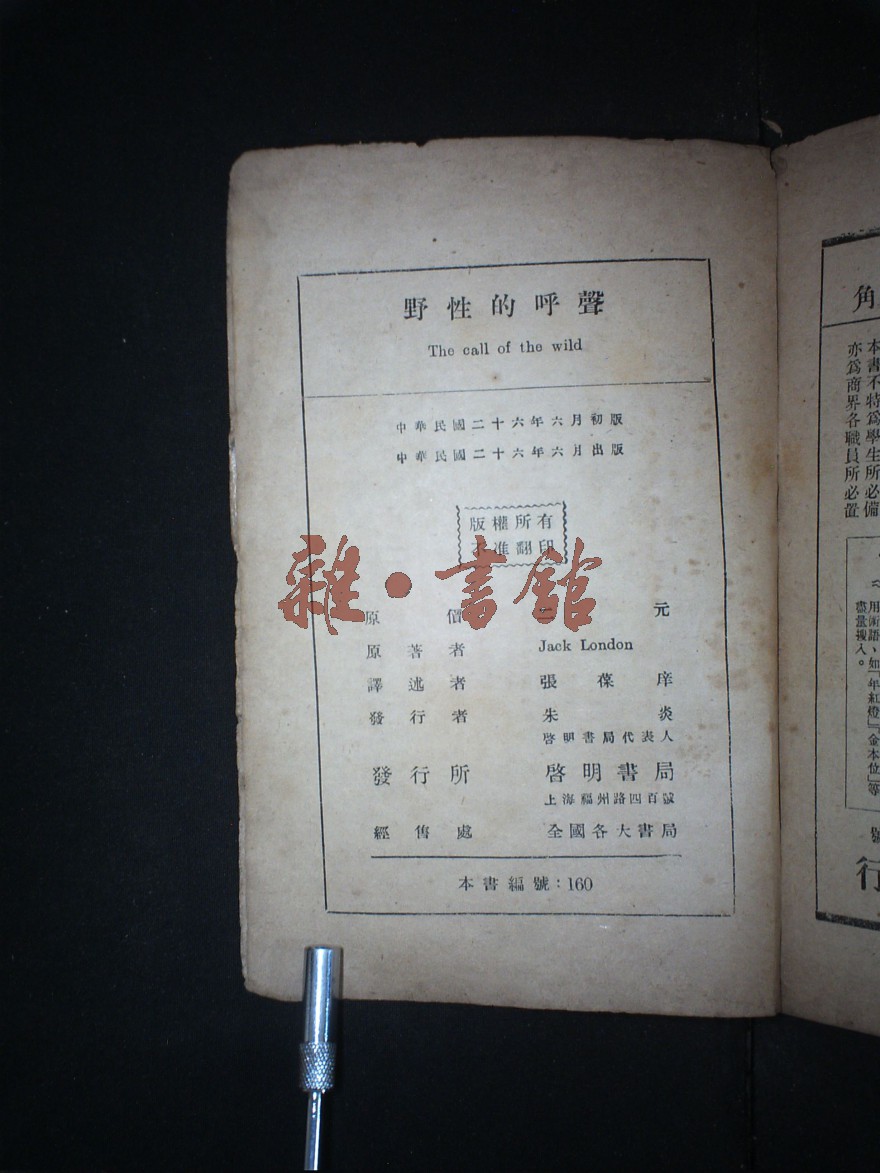 野性的呼聲
The call of the wild
中華民國二十六年六月初版
中華民國二十六年六月出版
版權所有
不准翻印
雜·書館
原價 元
原著者 Jack London
譯述者 張葆庠
發行者 朱炎
啓明書局代表人
發行所 啓明書局
上海福州路四百號
經售處 全國各大書局
本書編號：160
角
本書不特爲學生所必備
亦爲商界各職員所必置
用術語、如「年紅燈」「金本位」等
盡量搜入。
號
行